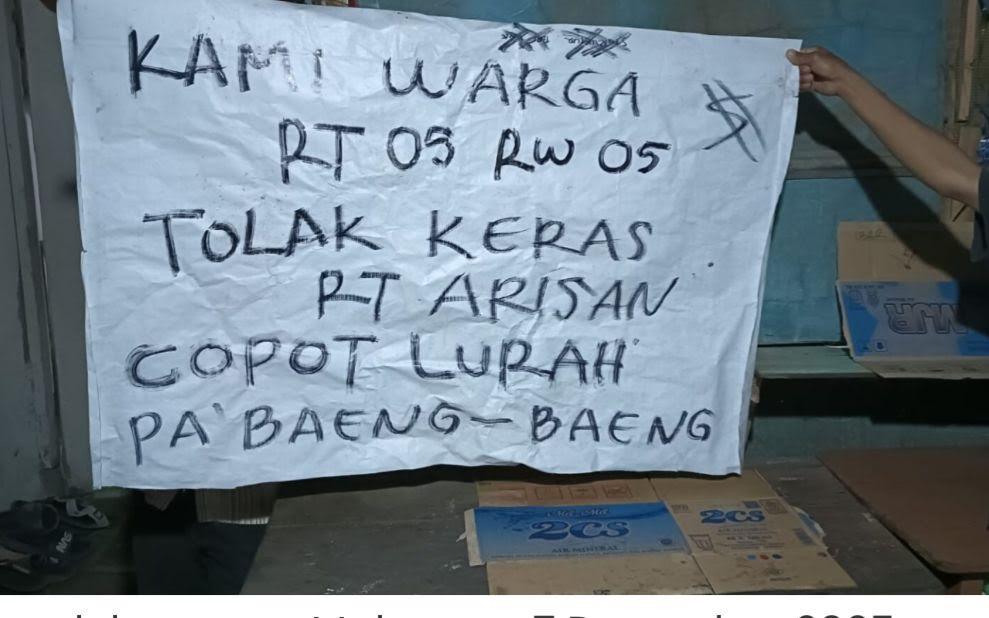 KAMI WARGA
RT 05 RW 05
TOLAK KERAS
RT ARISAN
COPOT LURAH
PA'BAENG-BAENG
2CS
AIR MINERAL
2CS